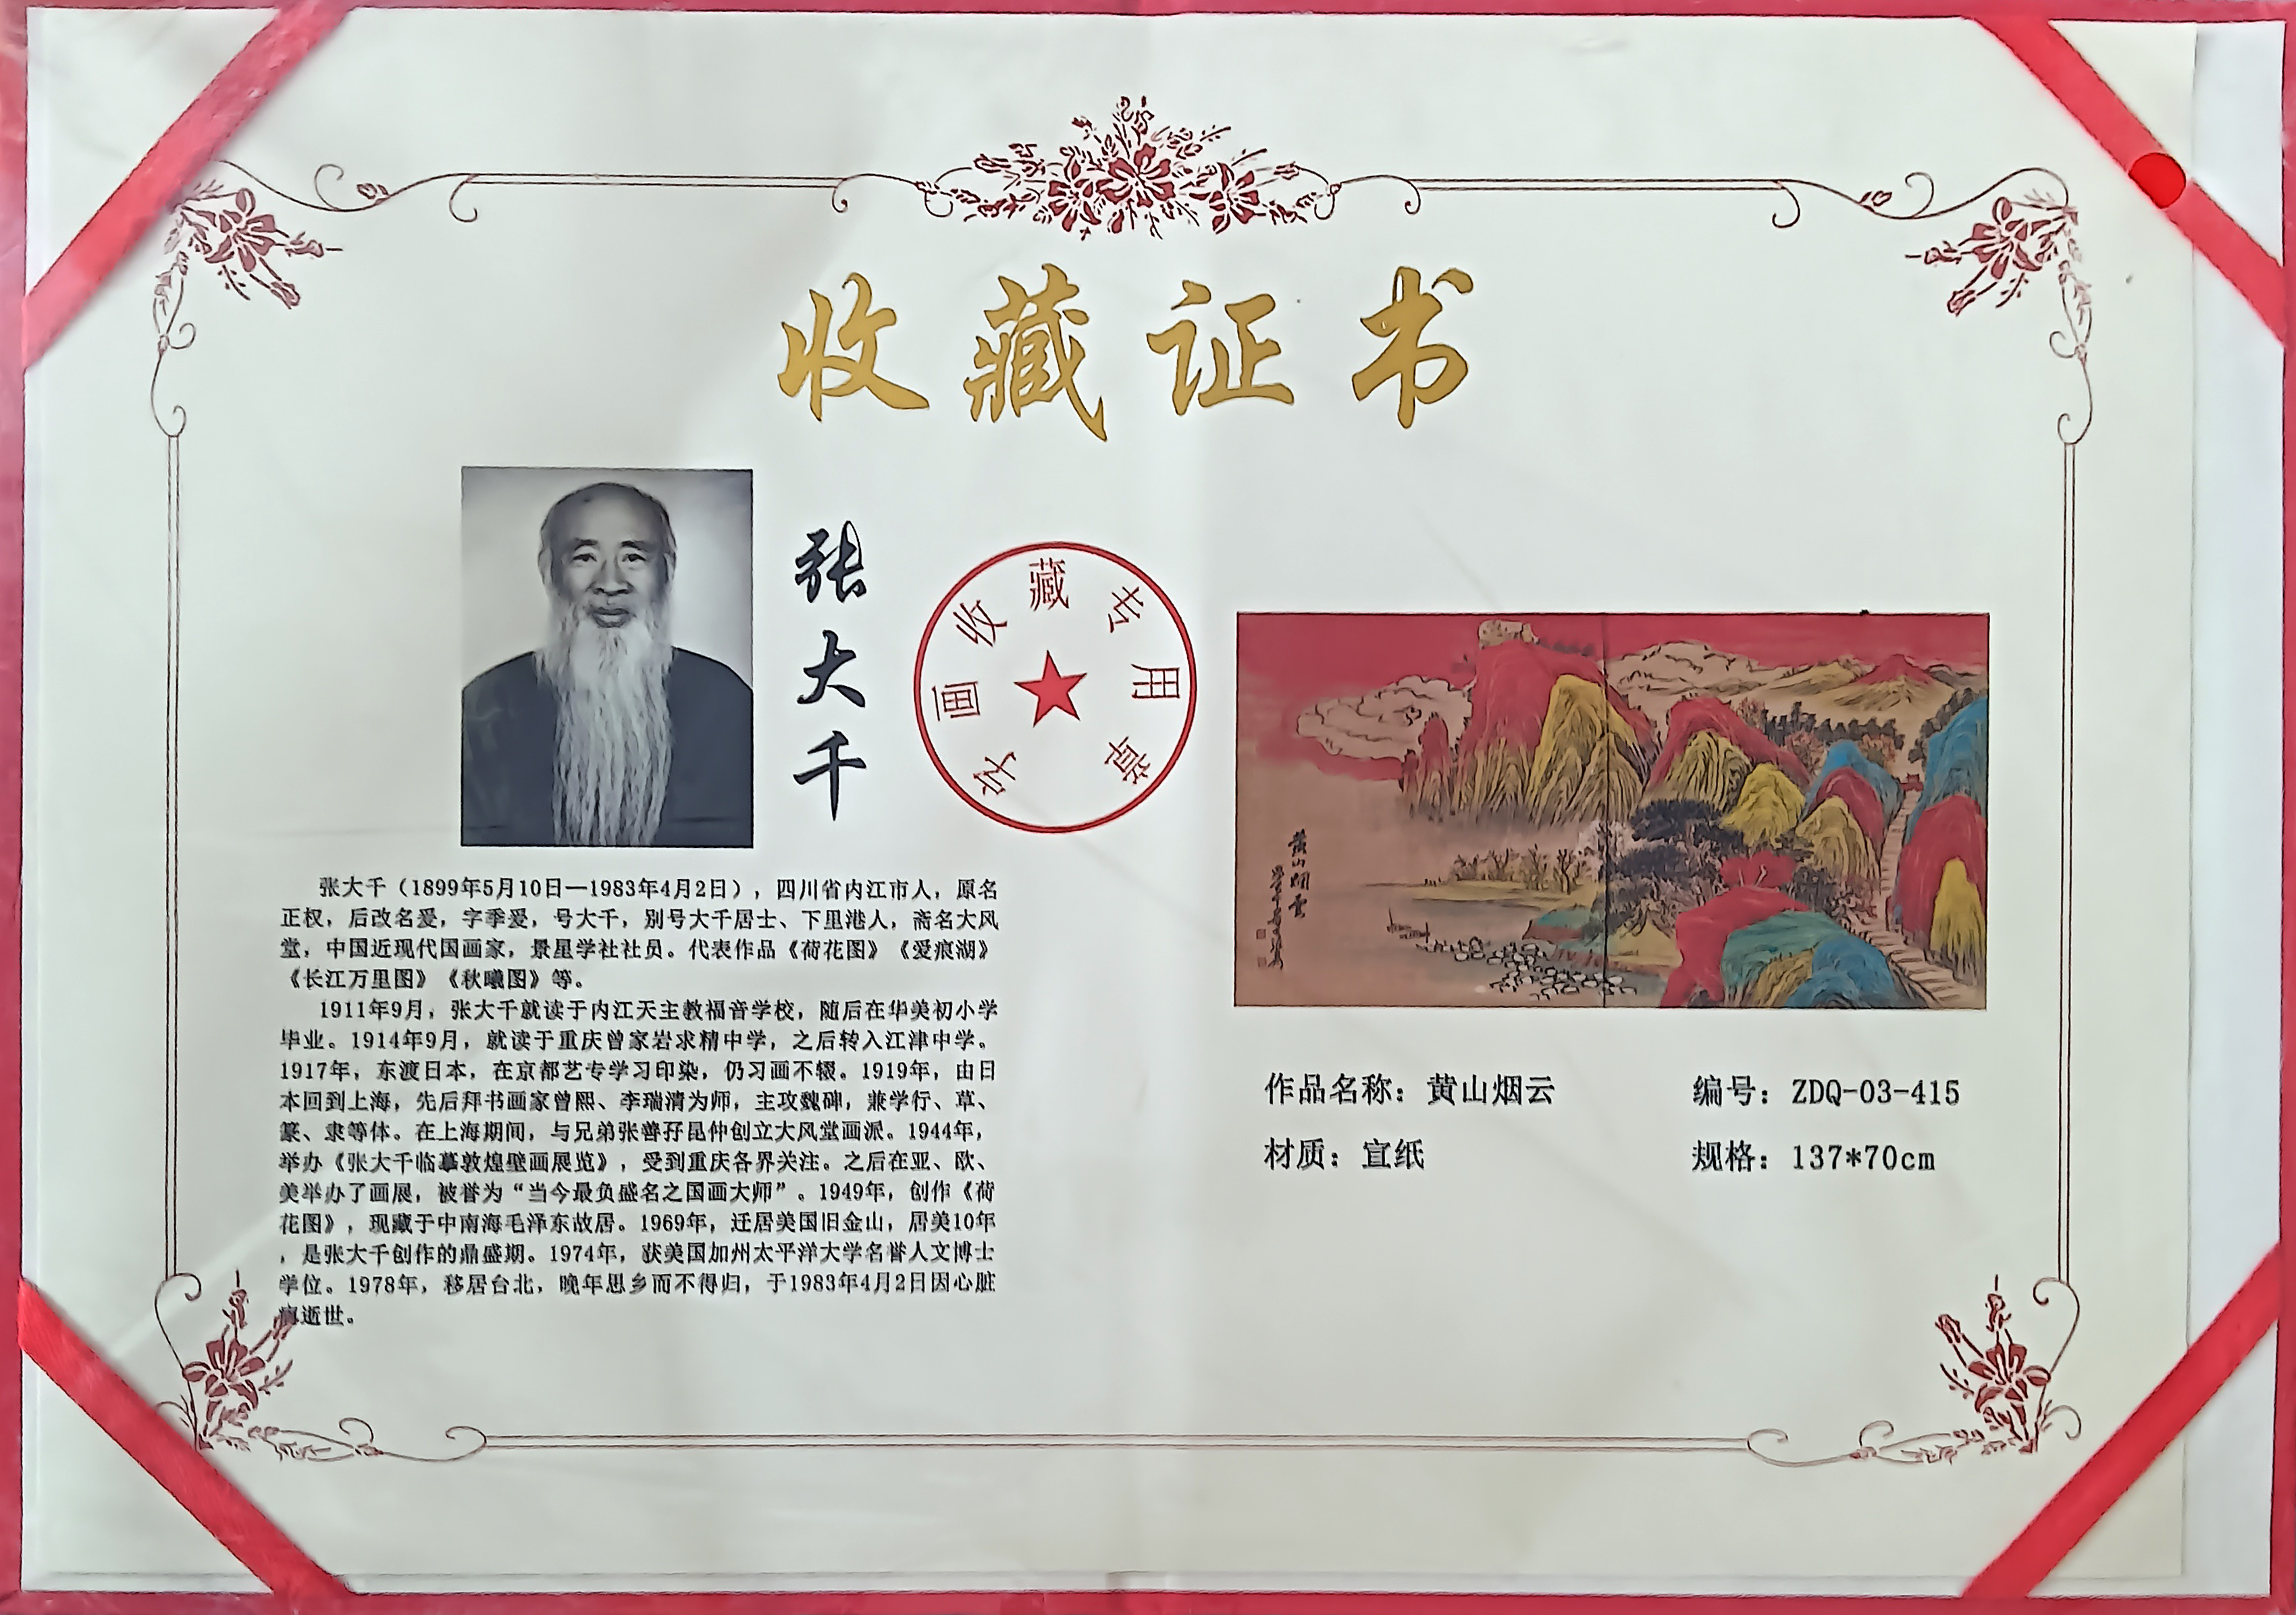 收藏证书
张大千
字画收藏专用章
张大千（1899年5月10日—1983年4月2日），四川省内江市人，原名
正权，后改名爰，字季爰，号大千，别号大千居士、下里港人，斋名大风
堂，中国近现代国画家，景星学社社员。代表作品《荷花图》《爱痕湖》
《长江万里图》《秋曦图》等。
1911年9月，张大千就读于内江天主教福音学校，随后在华美初小学
毕业。1914年9月，就读于重庆曾家岩求精中学，之后转入江津中学。
1917年，东渡日本，在京都艺专学习印染，仍习画不辍。1919年，由日
本回到上海，先后拜书画家曾熙、李瑞清为师，主攻魏碑，兼学行、草、
篆、隶等体。在上海期间，与兄弟张善孖昆仲创立大风堂画派。1944年，
举办《张大千临摹敦煌壁画展览》，受到重庆各界关注。之后在亚、欧、
美举办了画展，被誉为“当今最负盛名之国画大师”。1949年，创作《荷
花图》，现藏于中南海毛泽东故居。1969年，迁居美国旧金山，居美10年
，是张大千创作的鼎盛期。1974年，获美国加州太平洋大学名誉人文博士
学位。1978年，移居台北，晚年思乡而不得归，于1983年4月2日因心脏
病逝世。
黄山烟云
作品名称：黄山烟云
编号：ZDQ-03-415
材质：宣纸
规格：137*70cm